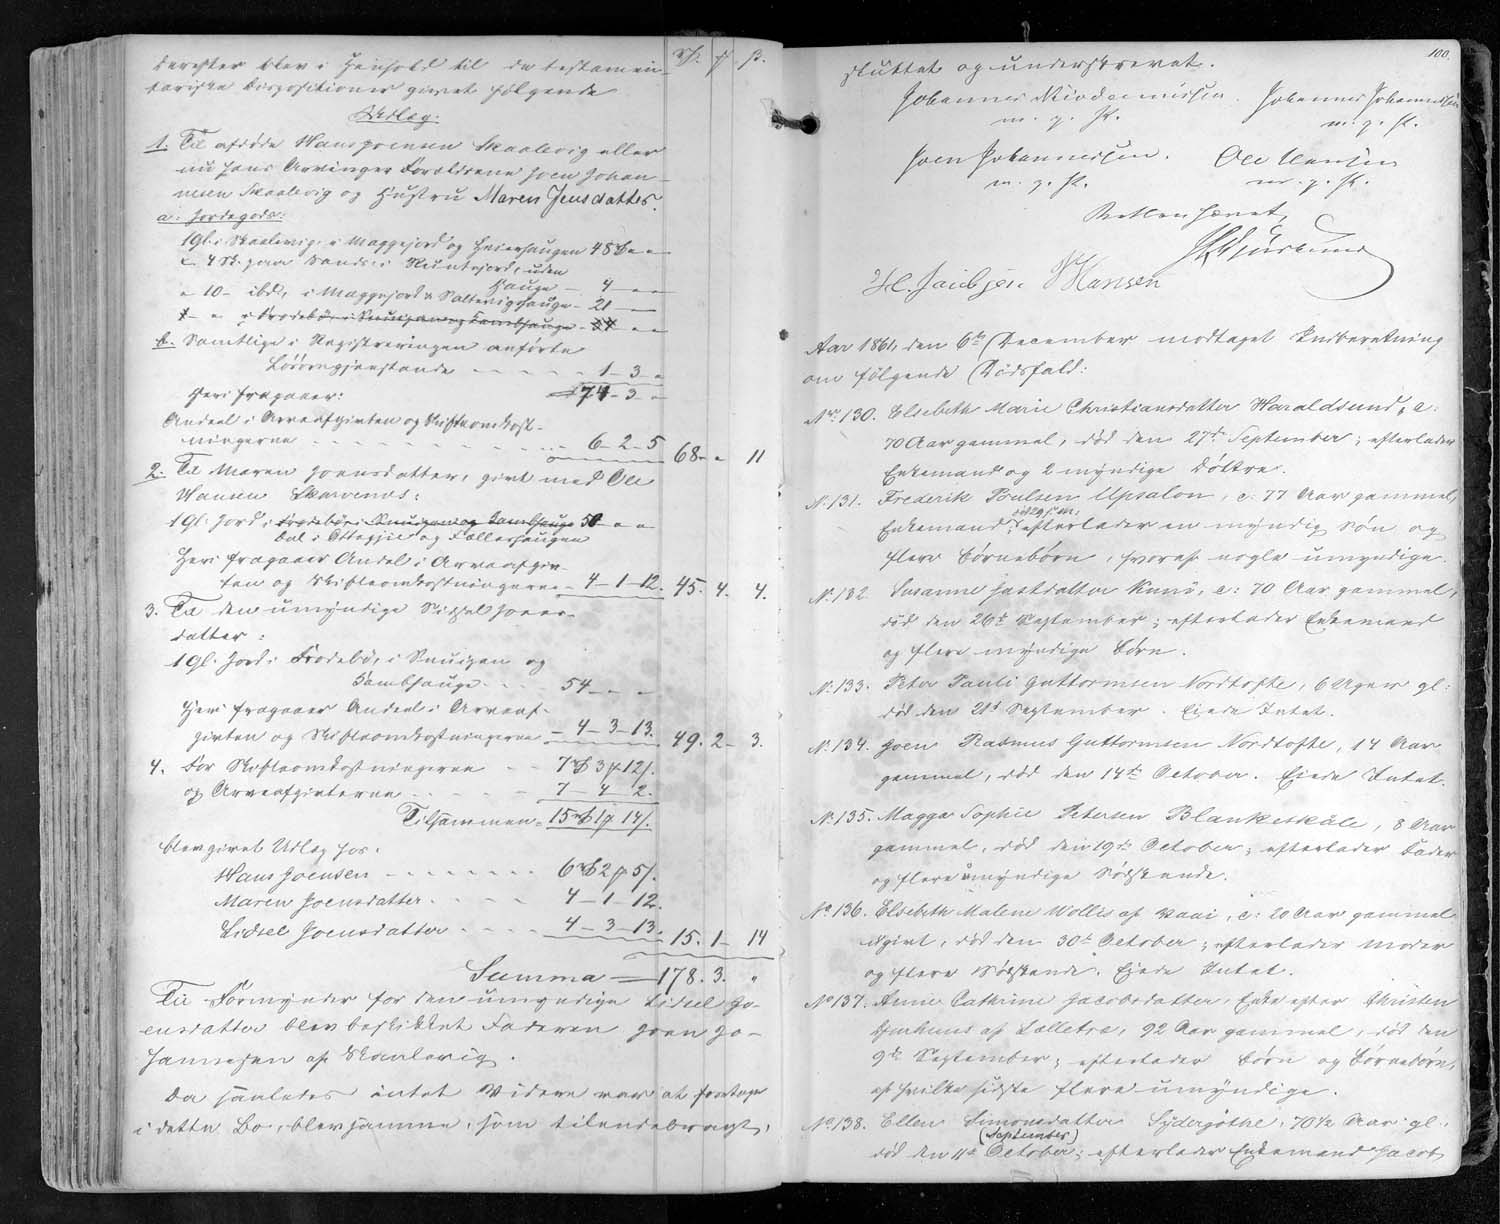 derefter blev i Henhold til de testamen-
tariske Dispositioner givet følgende
Udlæg:
1. Til afdøde Hans Joensen Skaalevig eller
nu hans Arvinger Forældrene Joen Johan-
nesen Skaalevig og Hustru Maren Jensdatter.
a. Jordegods:
1 Gl. i Skaalevig, i Møggejord og Heierhaugen 48 " "
" 4 Sk. paa Sand, i Skuntejord, uden
Hauge - 4 - "
" 10 - ibd, i Møggejord & Saltevigshauge - 21 - "
b. Samtlige i Registreringen anførte
Løsøregjenstande - - - - - 1 - 3 - "
Heri fragaaer: 74 - 3 - "
Andeel i Arveafgivten og Skifteomkost-
ningerne - - - - 6 - 2 - 5 68 - " 11
2. Til Maren Joensdatter, givt med Ole
Hansen Skarvenæs:
1 Gl. Jord, i 50 - " - "
Heri fragaaer Andeel i Arveafgiv-
ten og Skifteomkostningerne - 4 - 1 - 12. 45. 4. 4.
3. Til den umyndige Lidsel Joens-
datter:
1 Gl. Jord i Frodebø, i Snuigen og
Kambhauge - - 54 - " - "
Heri fragaaer Andeel i Arveaf-
givten og Skifteomkostningerne - 4 - 3 - 13. 49. 2 - 3.
4. For Skifteomkostningerne - - 7 3 12
og Arveafgivterne - - - - 7 - 4 2.
Tilsammen 15 1 14
blev givet Udlæg hos:
Hans Joensen - - - - - 6 2 5
Maren Joensdatter. - - - - 4 - 1 - 12.
Lidsel Joensdatter - - - - 4 - 3 - 13. 15. 1 - 14
Summa — 178. 3. "
Til Formynder for den umyndige Lidsel Jo-
ensdatter blev beskikket Faderen Joen Jo-
hannesen af Skaalevig.
Da saaledes intet Videre var at foretage
i dette Bo, blev samme, som tilendebragt,
100.
sluttet og underskrevet.
Johannes Johannes Johannesen
m. p. P. m. p. P.
Joen Johannesen. Ole Hansen
m. p. P. m. p. P.
Retten hævet,
H. Jacobsen. Hansen
Aar 1861, den 6te December modtaget Indberetning
om følgende Dødsfald:
No. 130. Elsebeth Marie Christiansdatter Haraldsund, c:
70 Aar gammel, død den 27de September; efterlader
Enkemand og 2 myndige Døttre.
No. 131. Frederik Poulsen Upsalon, c: 77 Aar gammel,
Enkemand, efterlader en myndig Søn og
flere Børnebørn, hvoraf nogle umyndige.
No. 132. Susanne Kunø, c: 70 Aar gammel,
død den 26de September; efterlader Enkemand
og flere myndige Børn.
No. 133. Peter Pauli Guttormsen Nordtofte, 6 Uger gl:
død den 21de September. Ejede Intet.
No. 134. Joen Rasmus Guttormsen Nordtofte, 14 Aar
gammel, død den 14de October. Ejede Intet.
No. 135. Magga Sophie Petersen Blankeskåle, 8 Aar
gammel, død den 19de October; efterlader Fader
og flere umyndige Sødskende.
No 136. Elsebeth Malene Wollis af Vaai, c: 20 Aar gammel
ugivt, død den 30te October; efterlader Moder
og flere Sødskende. Ejede Intet.
No 137. Anne Cathrine Jacobsdatter, Enke efter Christen
Djurhuus af Lælletræ, 92 Aar gammel, død den
9de September; efterlader Børn og Børnebørn,
af hvilke sidste flere umyndige.
No. 138. Ellen Simonsdatter Sydergøthe, 70 1/2 Aar gl.
(September)
død den 11te October; efterlader Enkemand Jacob